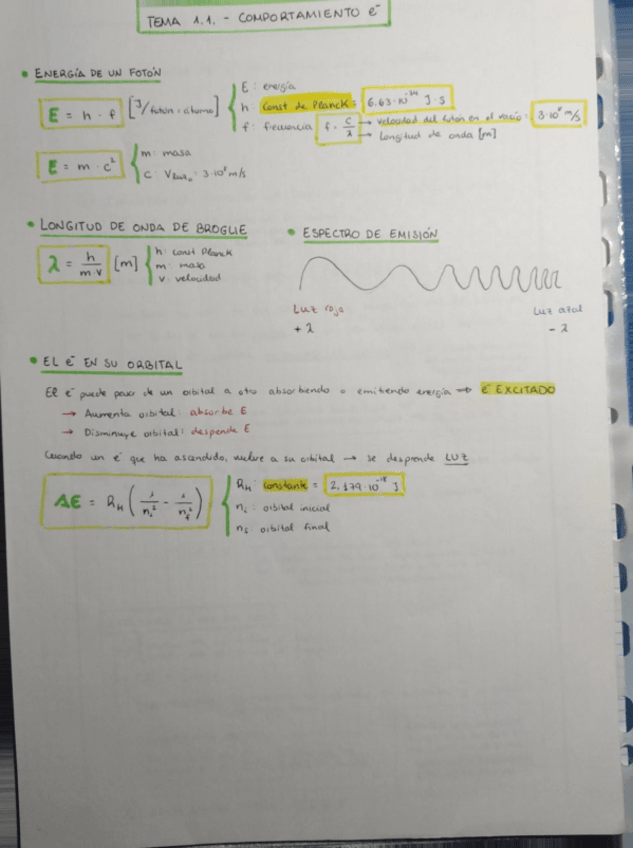 TEMA 1.1. - COMPORTAMIENTO e⁻
• ENERGÍA DE UN FOTÓN
E = h · f [J/fotón · átomo]
E: energía
h: Const de Planck: 6.63·10⁻³⁴ J·s
f: frecuencia f = c/λ → velocidad del fotón en el vacío: 3·10⁸ m/s
→ longitud de onda [m]
E = m · c²
m: masa
c: V luz: 3·10⁸ m/s
• LONGITUD DE ONDA DE BROGLIE
λ = h/m·v [m]
h: const Planck
m: masa
v: velocidad
• ESPECTRO DE EMISIÓN
Luz roja
+ λ
Luz azul
- λ
• EL e⁻ EN SU ORBITAL
El e⁻ puede pasar de un orbital a otro absorbiendo o emitiendo energía → e⁻ EXCITADO
→ Aumenta orbital: absorbe E
→ Disminuye orbital: desprende E
Cuando un e⁻ que ha ascendido, vuelve a su orbital → se desprende LUZ
ΔE = R_H (1/nᵢ² - 1/n_f²)
R_H: constante = 2,179·10⁻¹⁸ J
nᵢ: orbital inicial
n_f: orbital final